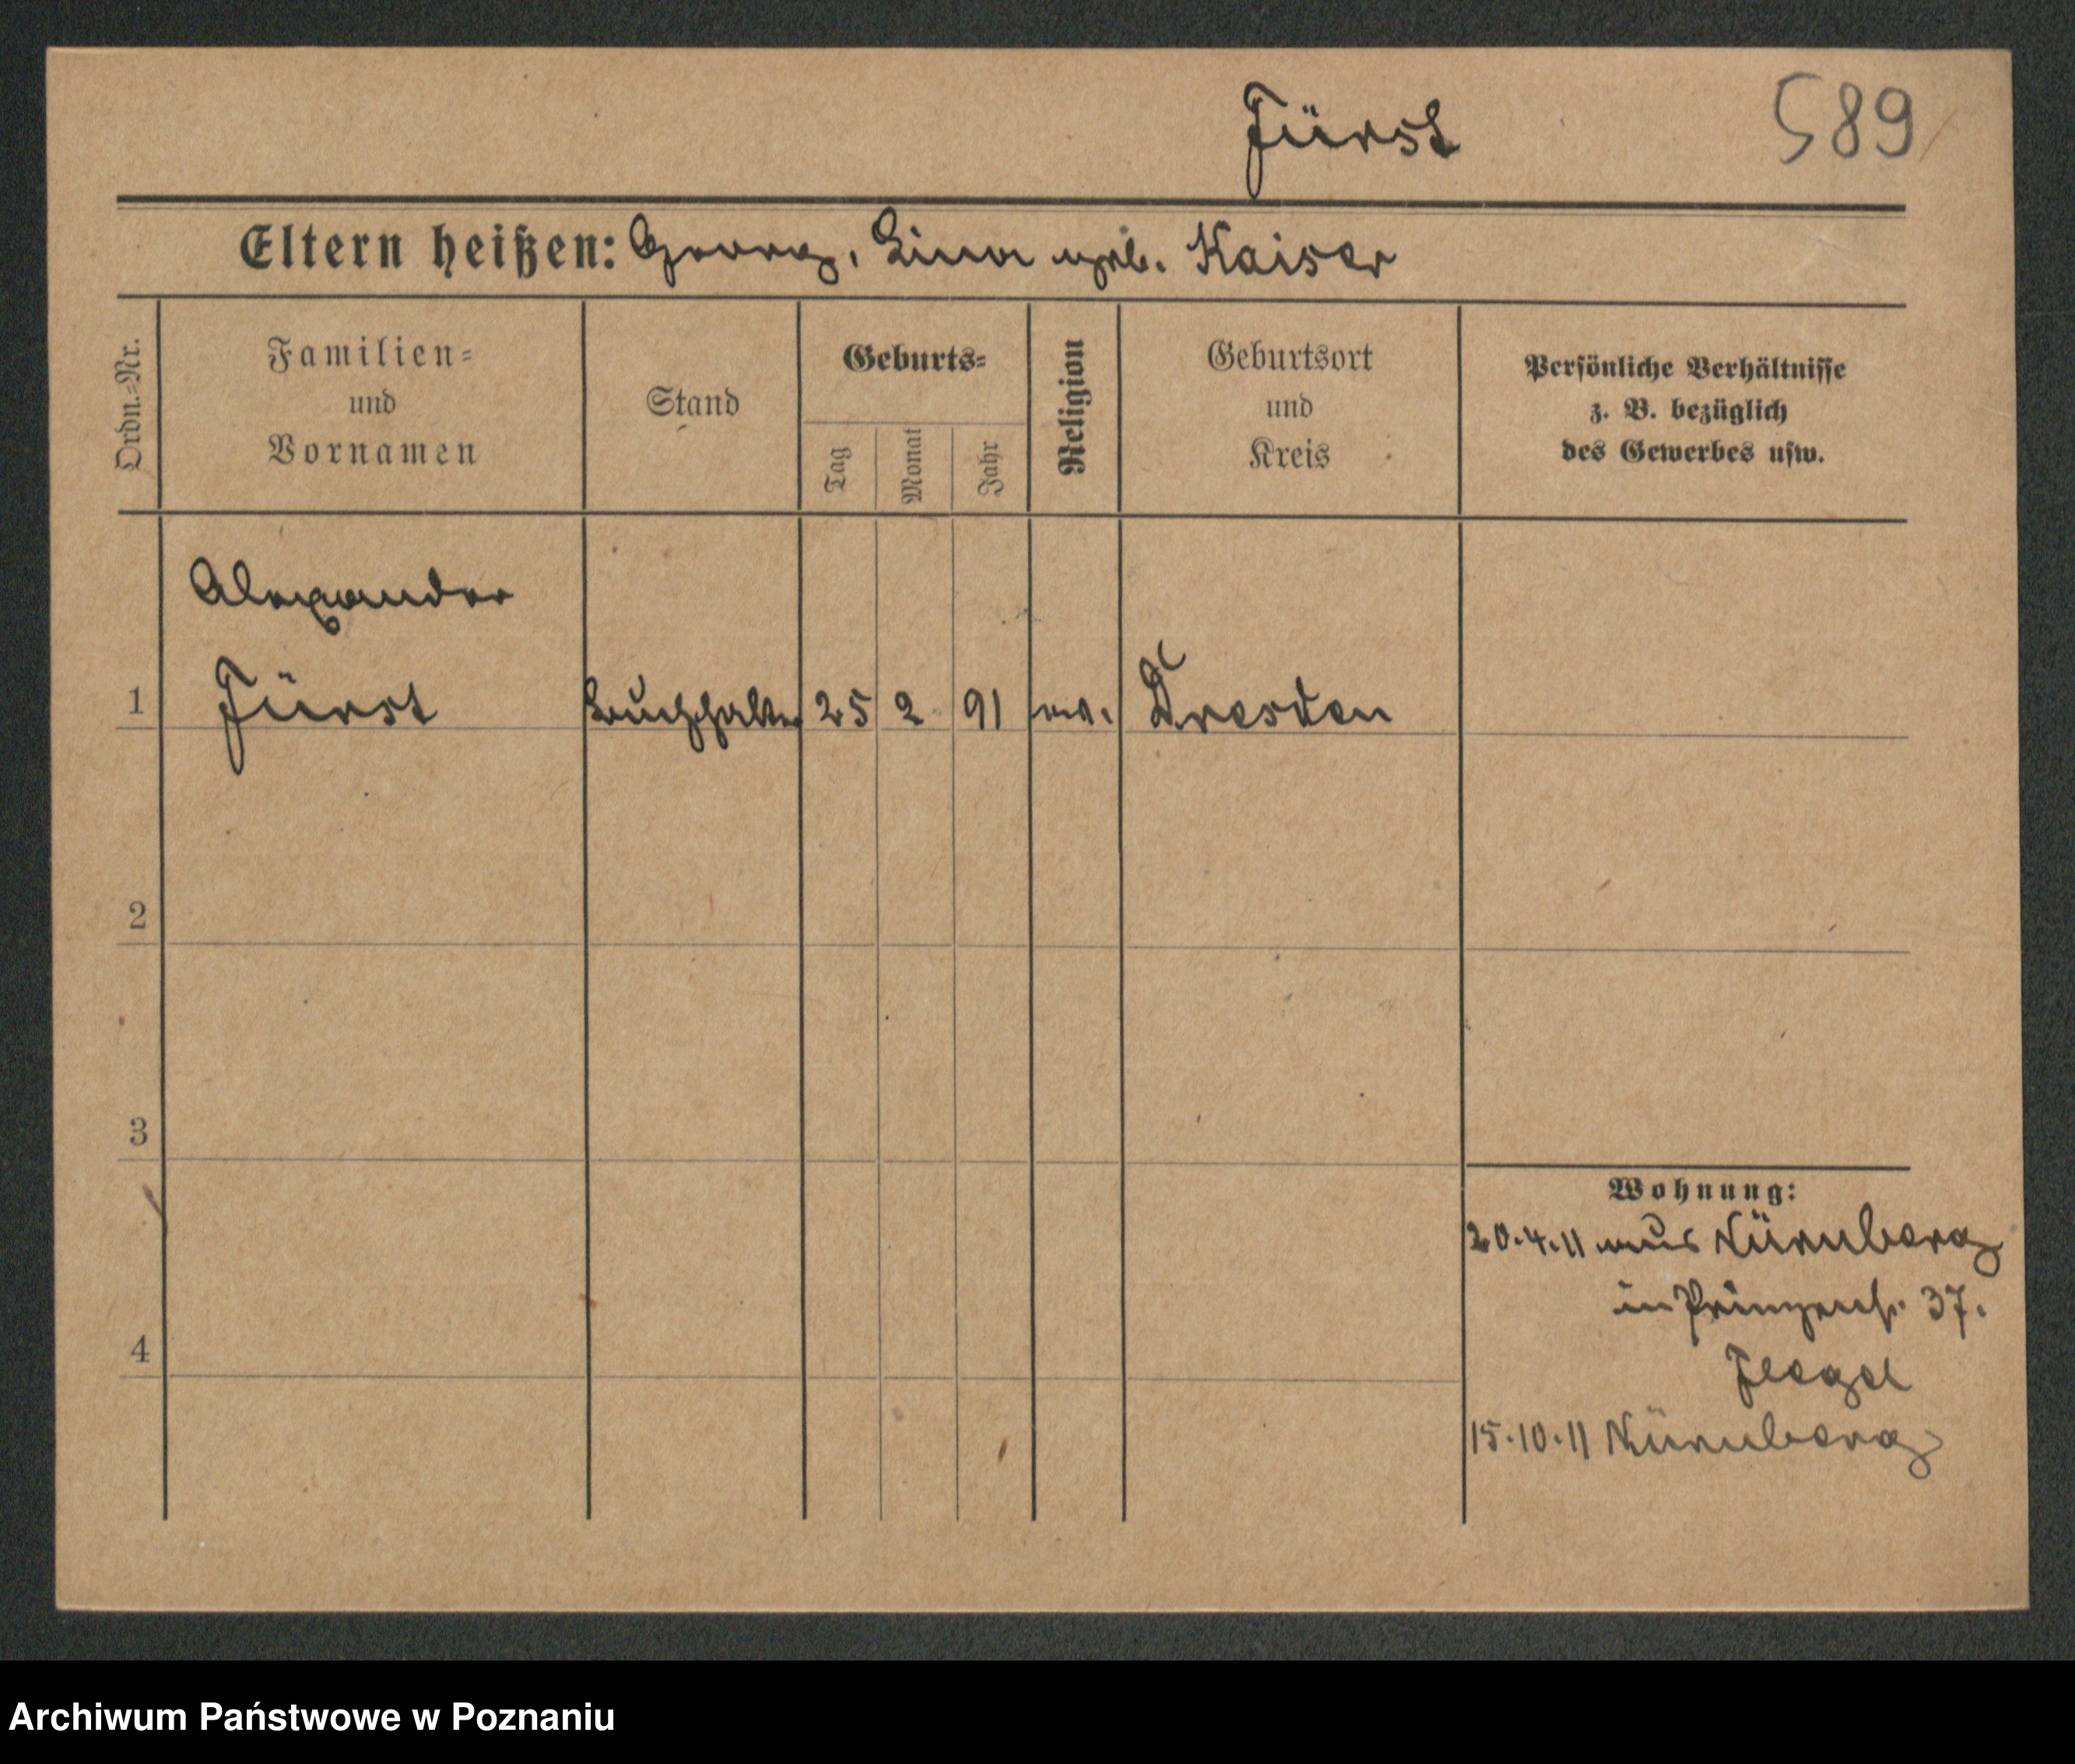 Fürst 589
Eltern heißen: Georg, Lina geb. Kaiser
Ordn.=Nr.
Familien=
und
Vornamen
Stand
Geburts=
Tag
Monat
Jahr
Religion
Geburtsort
und
Kreis
Persönliche Verhältnisse
z. B. bezüglich
des Gewerbes usw.
Alexander
1 Fürst Buchhalter 25 2 91 ev. Dresden
2
3
4
Wohnung:
20.4.11 aus Nürnberg
in Prinzenst. 37.
Flegel
15.10.11 Nürnberg
Archiwum Państwowe w Poznaniu